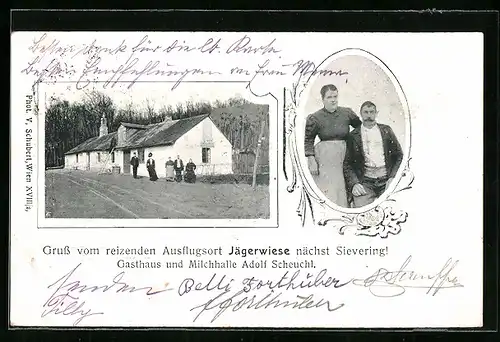 Besten Dank für die lb. Karte
Besten Empfehlungen an Frau
Phot. V. Schubert, Wien XVIII/3.
Gruß vom reizenden Ausflugsort Jägerwiese nächst Sievering!
Gasthaus und Milchhalle Adolf Scheuchl.
senden Belli Forthuber
Tilly Forthuber